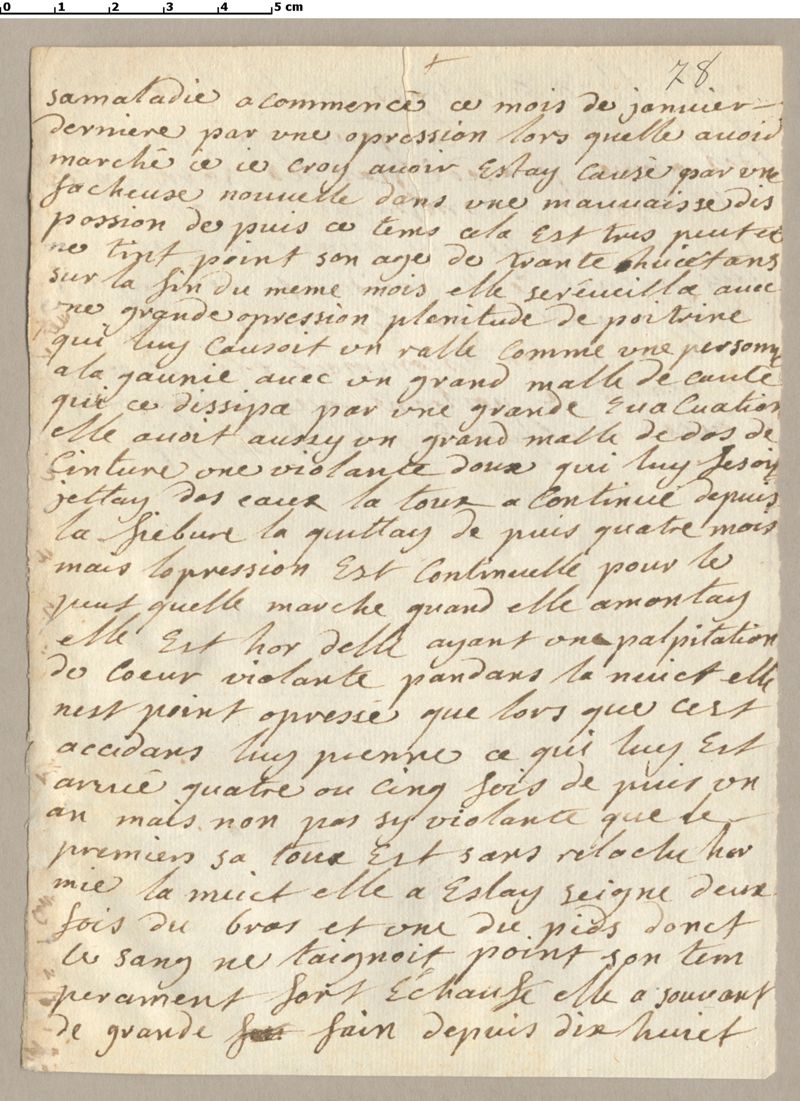 0 1 2 3 4 5 cm
78
samaladie acommencé ce mois de janvier
derniere par une opression lors quelle avoit
marché ce ie croy avoir Estay causé par une
facheuse nouvelle dans une mauvaisse dis
possion de puis ce tems cela Est tres peut et
ne tint point son age de trante huict ans
sur la fin du meme mois elle seréveilla avec
une grande opression plenitude de poitrine
qui luy causoit un ralle comme une personne
a la gaunie avec un grand malle de cauté
qui ce dissipa par une grande Evacuation
elle avoit aussy un grand malle de dos de
Cinture une violante doux qui luy fesoit
jettay dos eaux la toux a Continué depuis
la fiebure la quittay de puis quatre mois
mais lopression Est Continuelle pour le
peut quelle marche quand elle amontay
elle Est hor delle ayant une palpitation
de Coeur violante pandans la nuict elle
nest point opressé que lors que cest
accidans luy prenne ce qui luy Est
arivé quatre ou Cinq fois de puis un
an mais non pas sy violante que le
premiers sa toux Est sans relache hor
mie la nuict elle a Estay seigne deux
fois du bras et une du pieds donct
le sang ne taignoit point son tem
perament fort Échaufé elle a souvant
de grande fain depuis dix huict